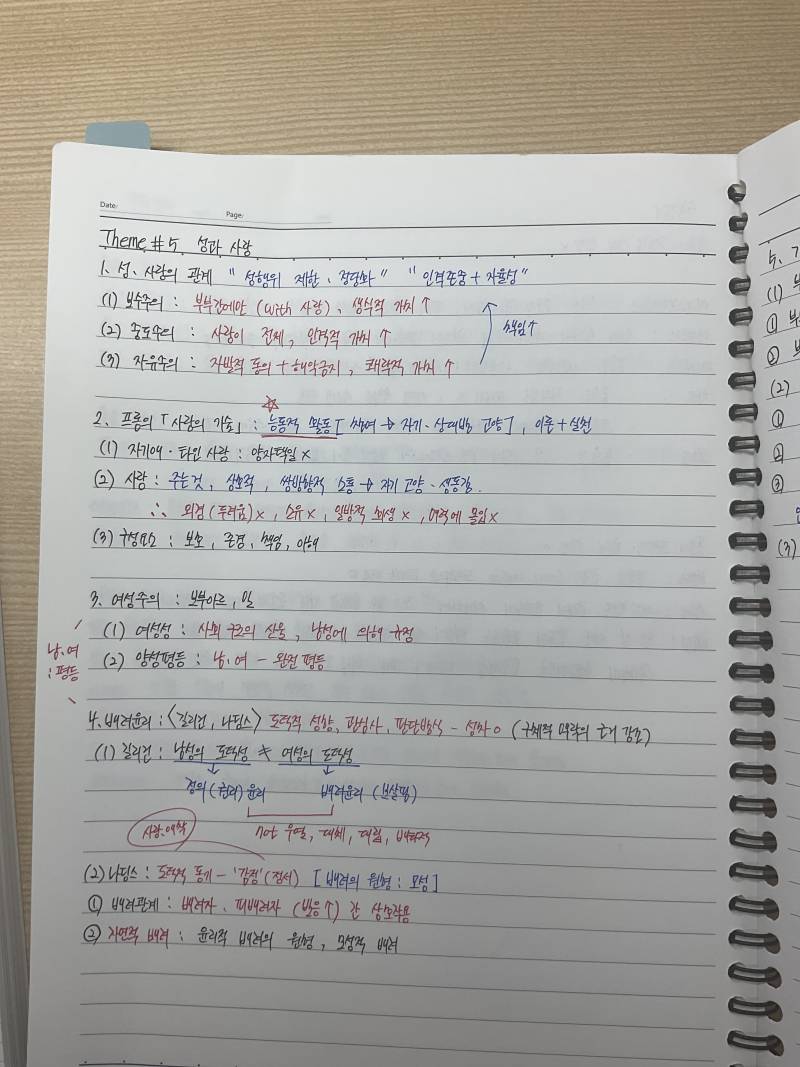 Date:
Page:
Theme #5 성과 사랑
1. 성, 사랑의 관계 "성행위 제한, 정당화" "인격존중 + 자율성"
(1) 보수주의 : 부부간에만 (with 사랑), 생식적 가치 ↑
(2) 중도주의 : 사랑이 전제, 인격적 가치 ↑
책임↑
(3) 자유주의 : 자발적 동의 + 해악금지, 쾌락적 가치 ↑
2. 프롬의 「사랑의 기술」 : 능동적 활동 [ 참여 → 자기·상대방 고양 ], 이론 + 실천
(1) 자기애·타인 사랑 : 양자택일 x
(2) 사랑 : 주는 것, 상호적, 쌍방향적 소통 → 자기 고양 · 생동감.
∴ 외경 (두려움) x, 소유 x, 일방적 희생 x, 매력에 몰입 x
(3) 구성요소 : 보호, 존경, 책임, 이해
3. 여성주의 : 보부아르, 밀
(1) 여성성 : 사회 구조의 산물, 남성에 의해 규정
남·여
: 평등
(2) 양성평등 : 남·여 - 완전 평등
4. 배려윤리 : 〈길리건, 나딩스〉 도덕적 성향, 관심사, 판단방식 - 성차 o (구체적 맥락의 근거 강조)
(1) 길리건 : 남성의 도덕성 ≠ 여성의 도덕성
정의(권리) 윤리 배려윤리 (보살핌)
not 우열, 대체, 대립, 배타적
(2) 나딩스 : 도덕적 동기 - '감정' (정서) [ 배려의 원형 : 모성 ]
① 배려관계 : 배려자·피배려자 (반응↑) 간 상호작용
② 자연적 배려 : 윤리적 배려의 원형, 모성적 배려